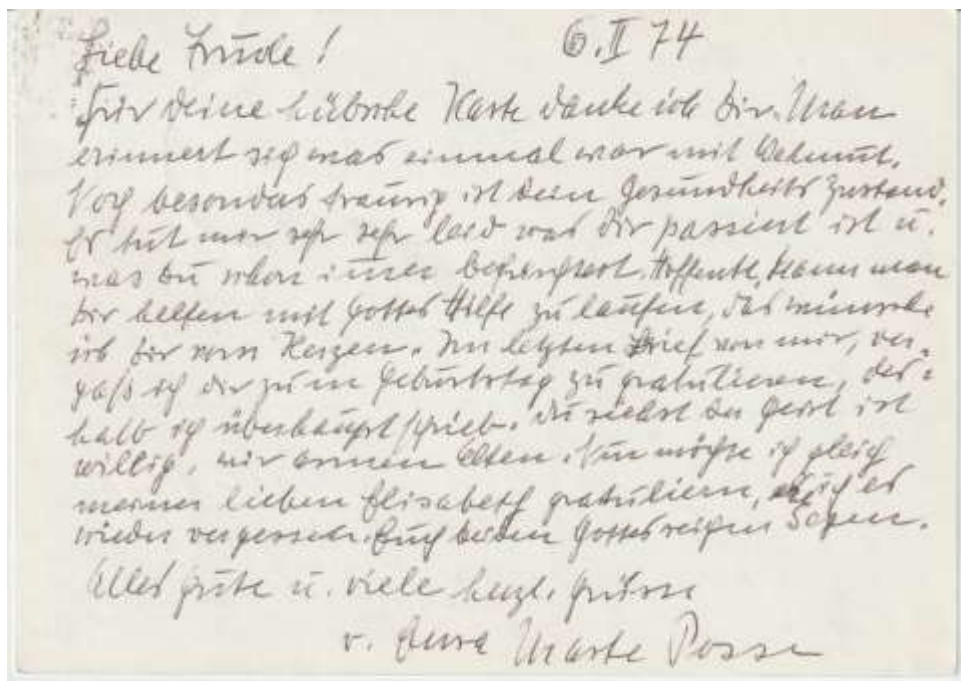 6. II 74
Liebe Trude!
Für Deine hübsche Karte danke ich Dir. Man
erinnert sich was einmal war mit Wehmut.
Noch besonders traurig ist Dein Gesundheits Zustand.
Es tut mir sehr sehr leid was Dir passiert ist u.
was Du schon immer Hoffentl. kann man
Dir helfen mit Gottes Hilfe zu laufen, das wünsche
ich Dir von Herzen. Im letzten Brief von mir, ver-
gaß ich Dir zum Geburtstag zu gratulieren, des-
halb ich überhaupt schrieb. Du siehst der Geist ist
willig, wir armen Alten. Nun möchte ich gleich
meiner lieben Elisabeth gratulieren, ich es
wieder vergessen. Euch beiden Gottes reichen Segen.
Alles gute u. viele herzl. Grüsse
v. Eure Marte Posse